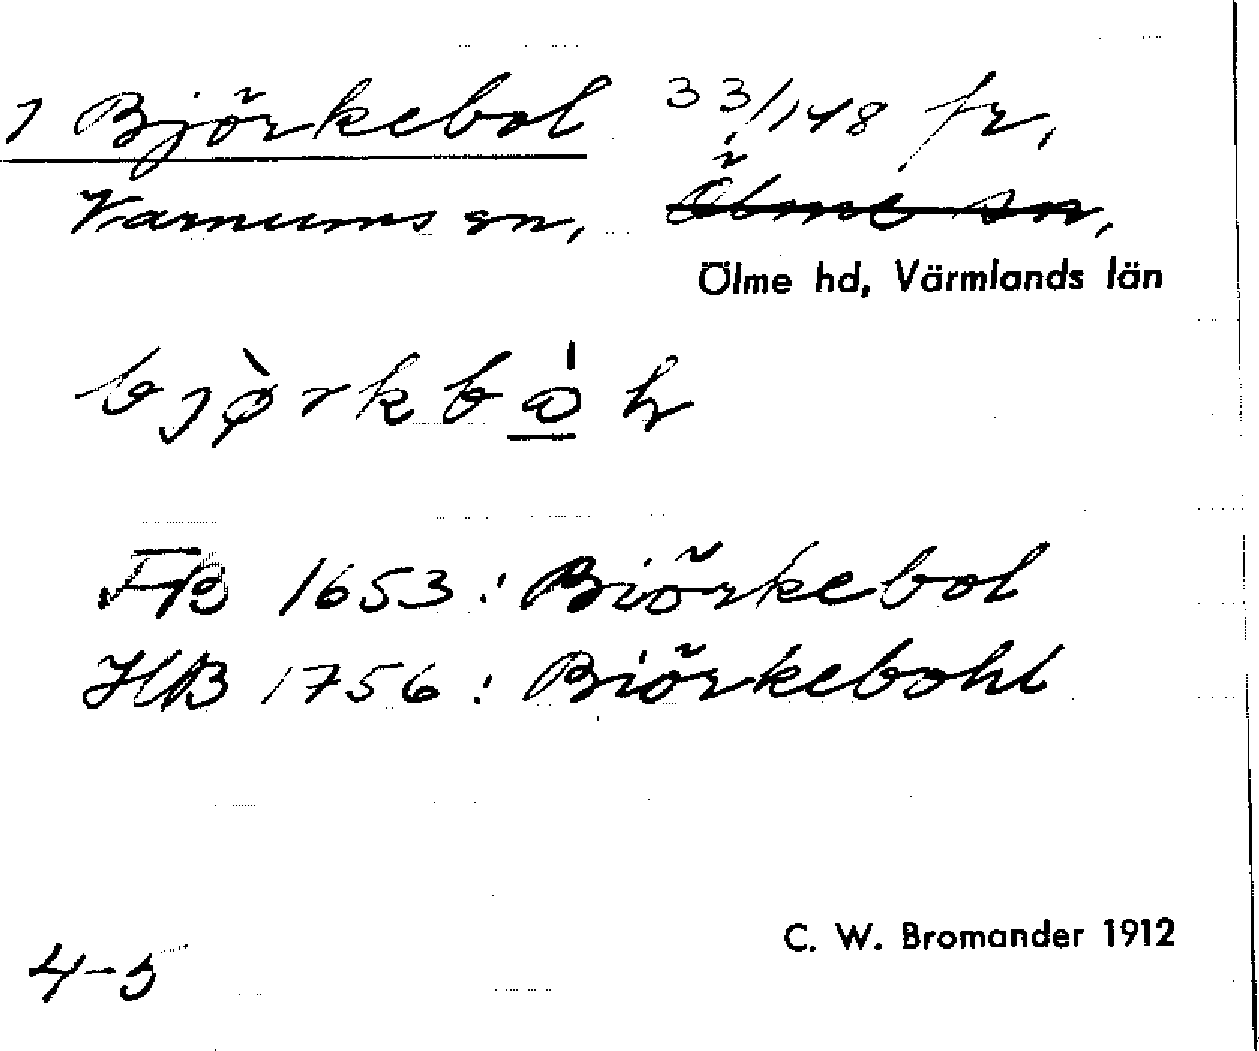 1 Björkebol 33/148 fr,
Varnums sn, Ölme sn,
Ölme hd, Värmlands län
bjørkbo̲h
FB 1653: Biörkebol
HB 1756: Biörkebohl
C. W. Bromander 1912
4-5